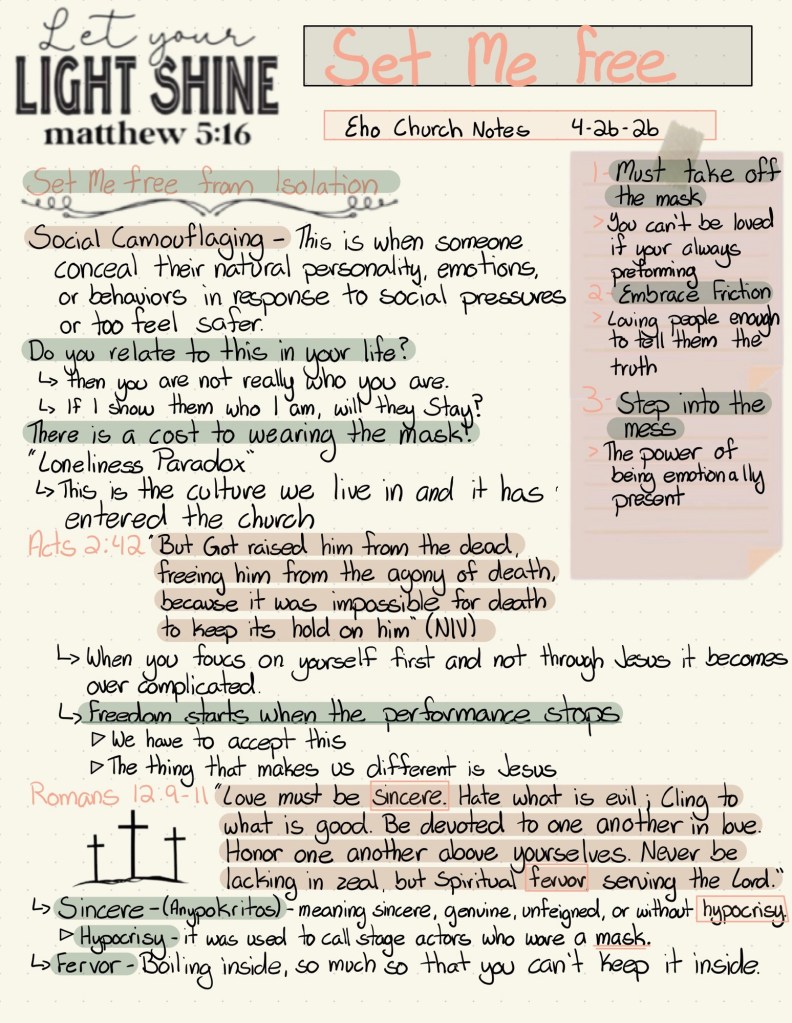 Let your
LIGHT SHINE
matthew 5:16
Set Me free
Eho Church Notes 4-26-26
Set Me free from Isolation
Social Camouflaging - This is when someone
conceal their natural personality, emotions,
or behaviors in response to social pressures
or too feel safer.
Do you relate to this in your life?
↳ then you are not really who you are.
↳ If I show them who I am, will they Stay?
There is a cost to wearing the mask!
"Loneliness Paradox"
↳ This is the culture we live in and it has
entered the church
Acts 2:42 "But Got raised him from the dead,
freeing him from the agony of death,
because it was impossible for death
to keep its hold on him" (NIV)
↳ When you foucs on yourself first and not through Jesus it becomes
over complicated.
↳ Freedom starts when the performance stops
▷ We have to accept this
▷ The thing that makes us different is Jesus
Romans 12:9-11 "Love must be sincere. Hate what is evil; Cling to
what is good. Be devoted to one another in love.
Honor one another above yourselves. Never be
lacking in zeal, but Spiritual fervor serving the Lord."
↳ Sincere - (Anypokritos) - meaning sincere, genuine, unfeigned, or without hypocrisy.
▷ Hypocrisy - it was used to call stage actors who wore a mask.
↳ Fervor - Boiling inside, so much so that you can't keep it inside.
1- Must take off
the mask
> You can't be loved
if your always
preforming
2- Embrace Friction
> Loving people enough
to tell them the
truth
3- Step into the
mess
> The power of
being emotionally
present